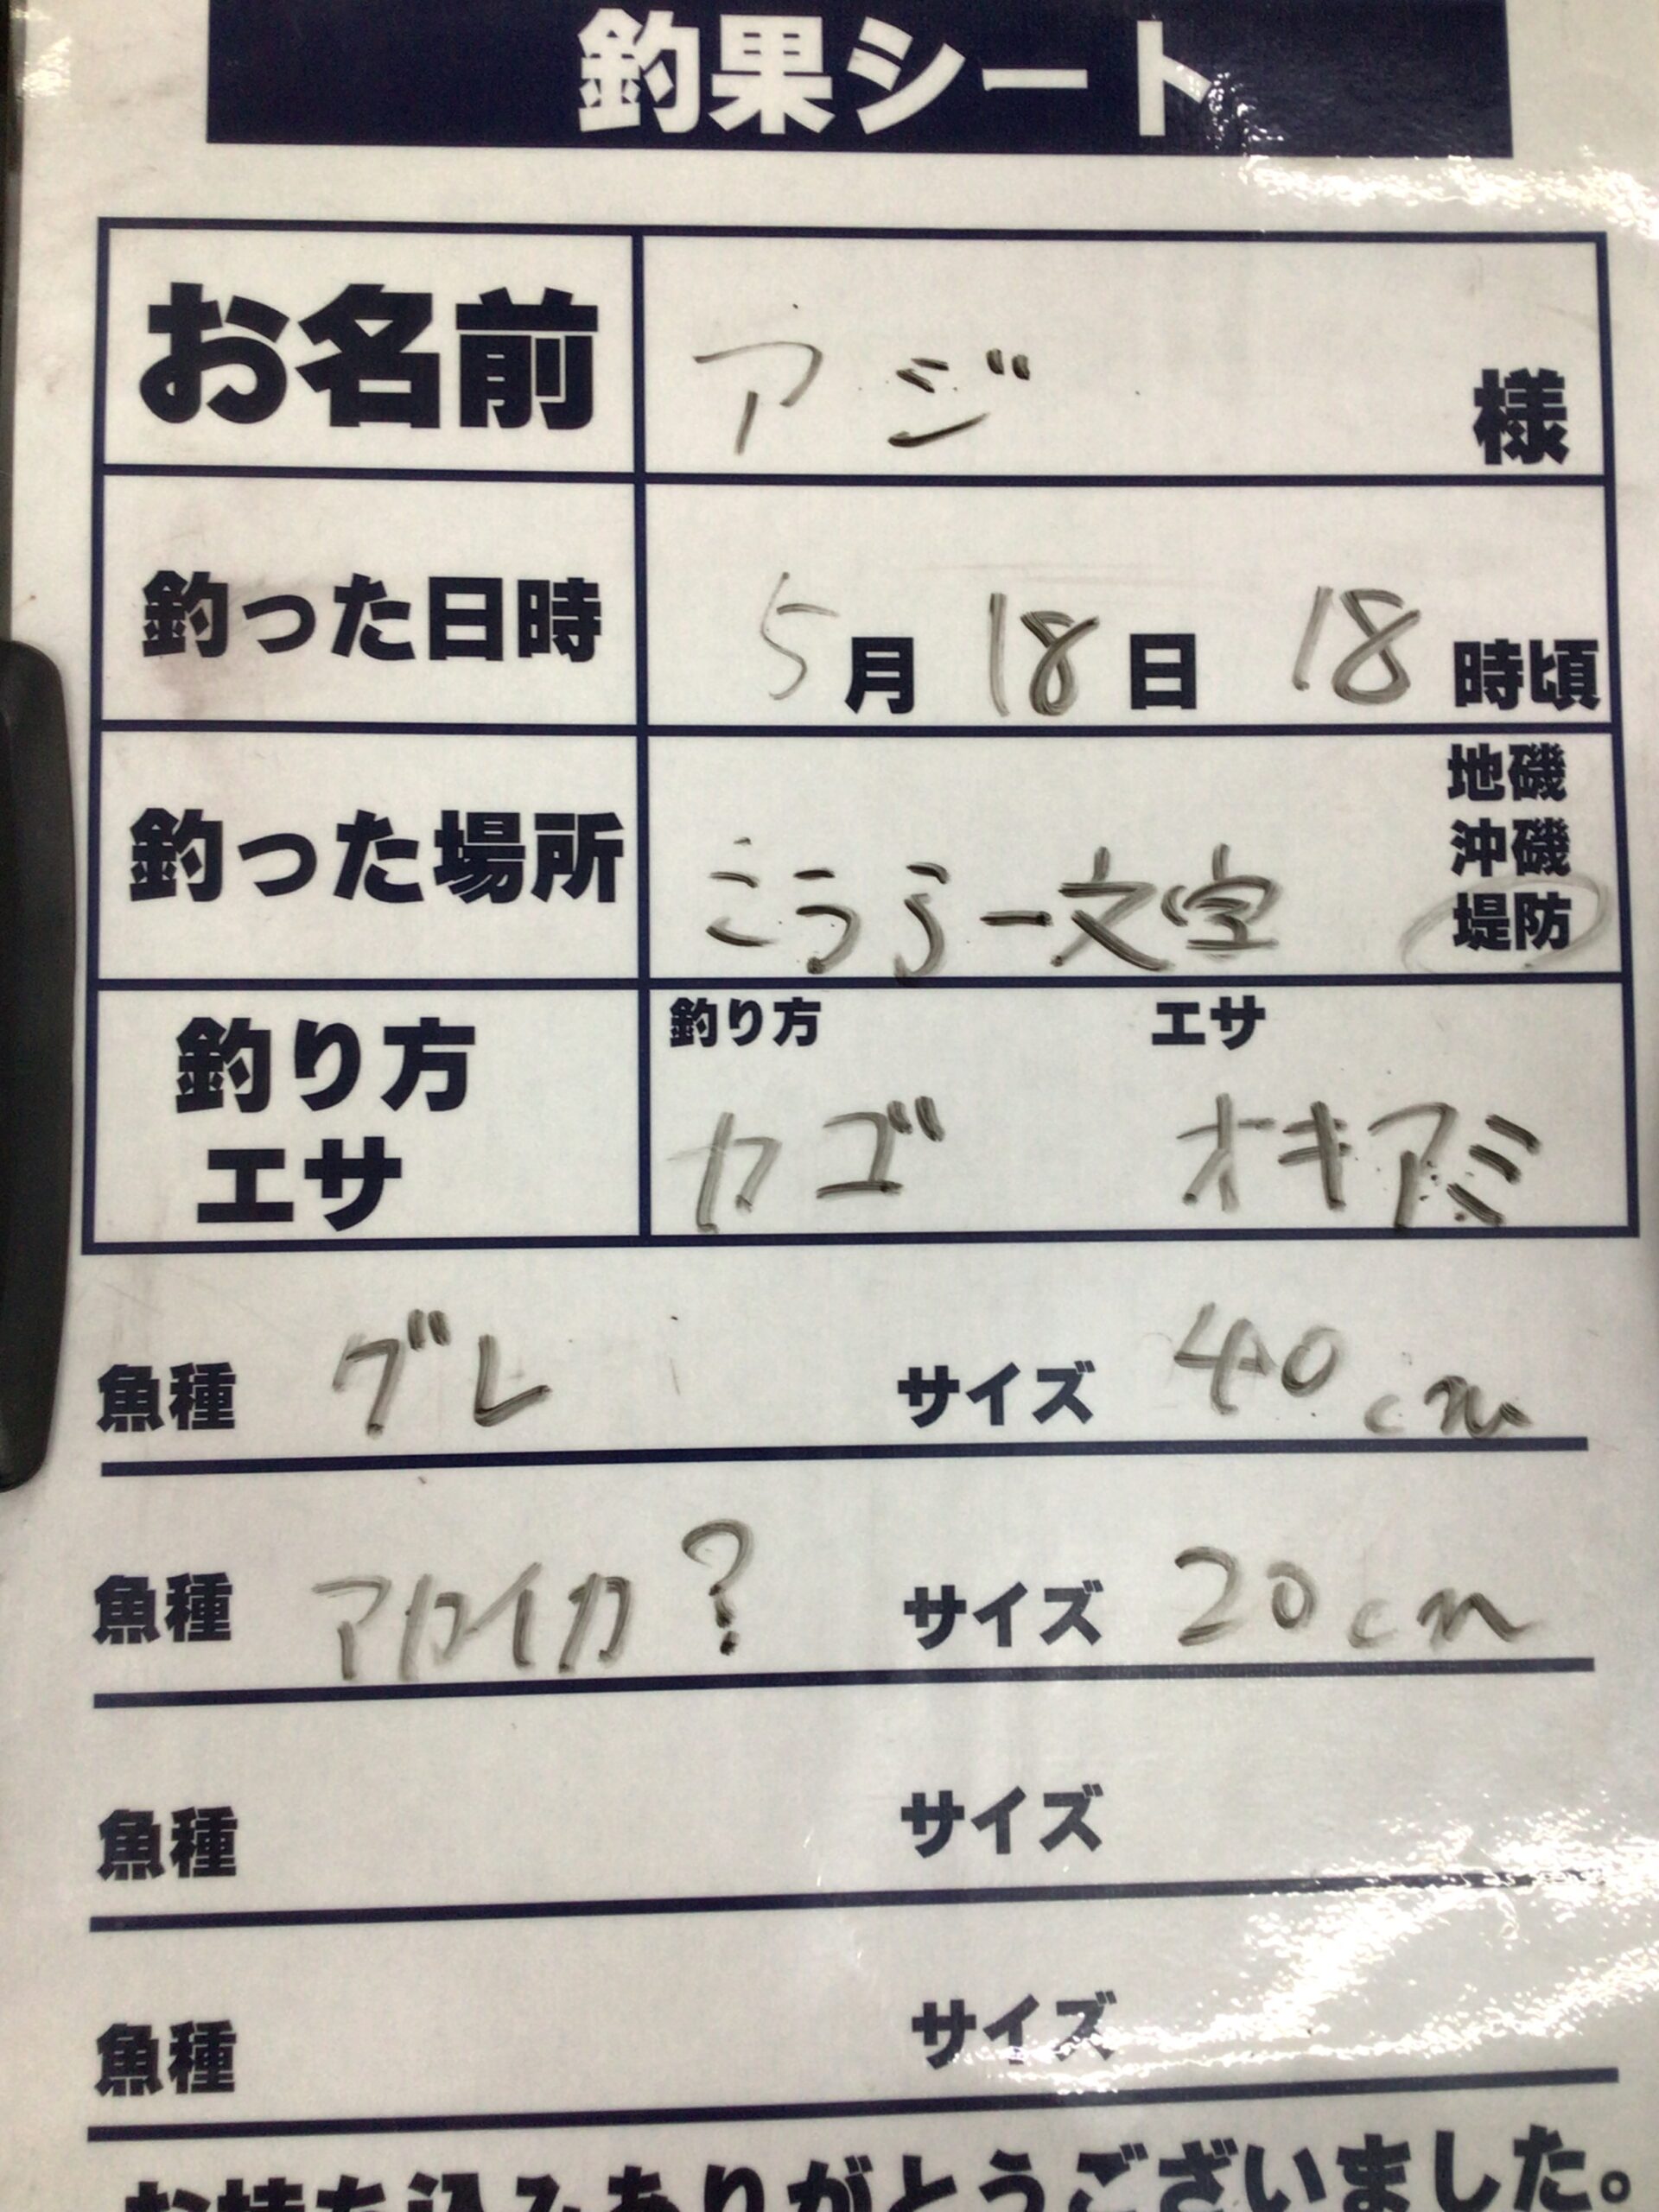 釣果シート
お名前 アジ 様
釣った日時 5月 18日 18時頃
釣った場所 こうろ一文字 地磯 沖磯 堤防
釣り方 エサ 釣り方 カゴ エサ オキアミ
魚種 グレ サイズ 40cm
魚種 アカイカ? サイズ 20cm
魚種 サイズ
魚種 サイズ
お持ち込みありがとうございました。